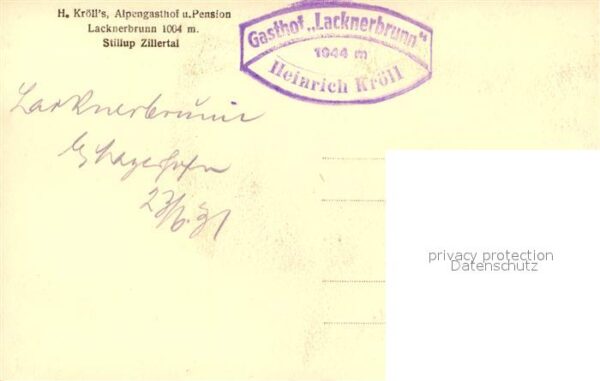 H. Kröll's, Alpengasthof u. Pension
Lacknerbrunn 1004 m.
Stillup Zillertal
Gasthof „Lacknerbrunn"
1044 m
Heinrich Kröll
Lacknerbrunn
23/6.31
privacy protection
Datenschutz